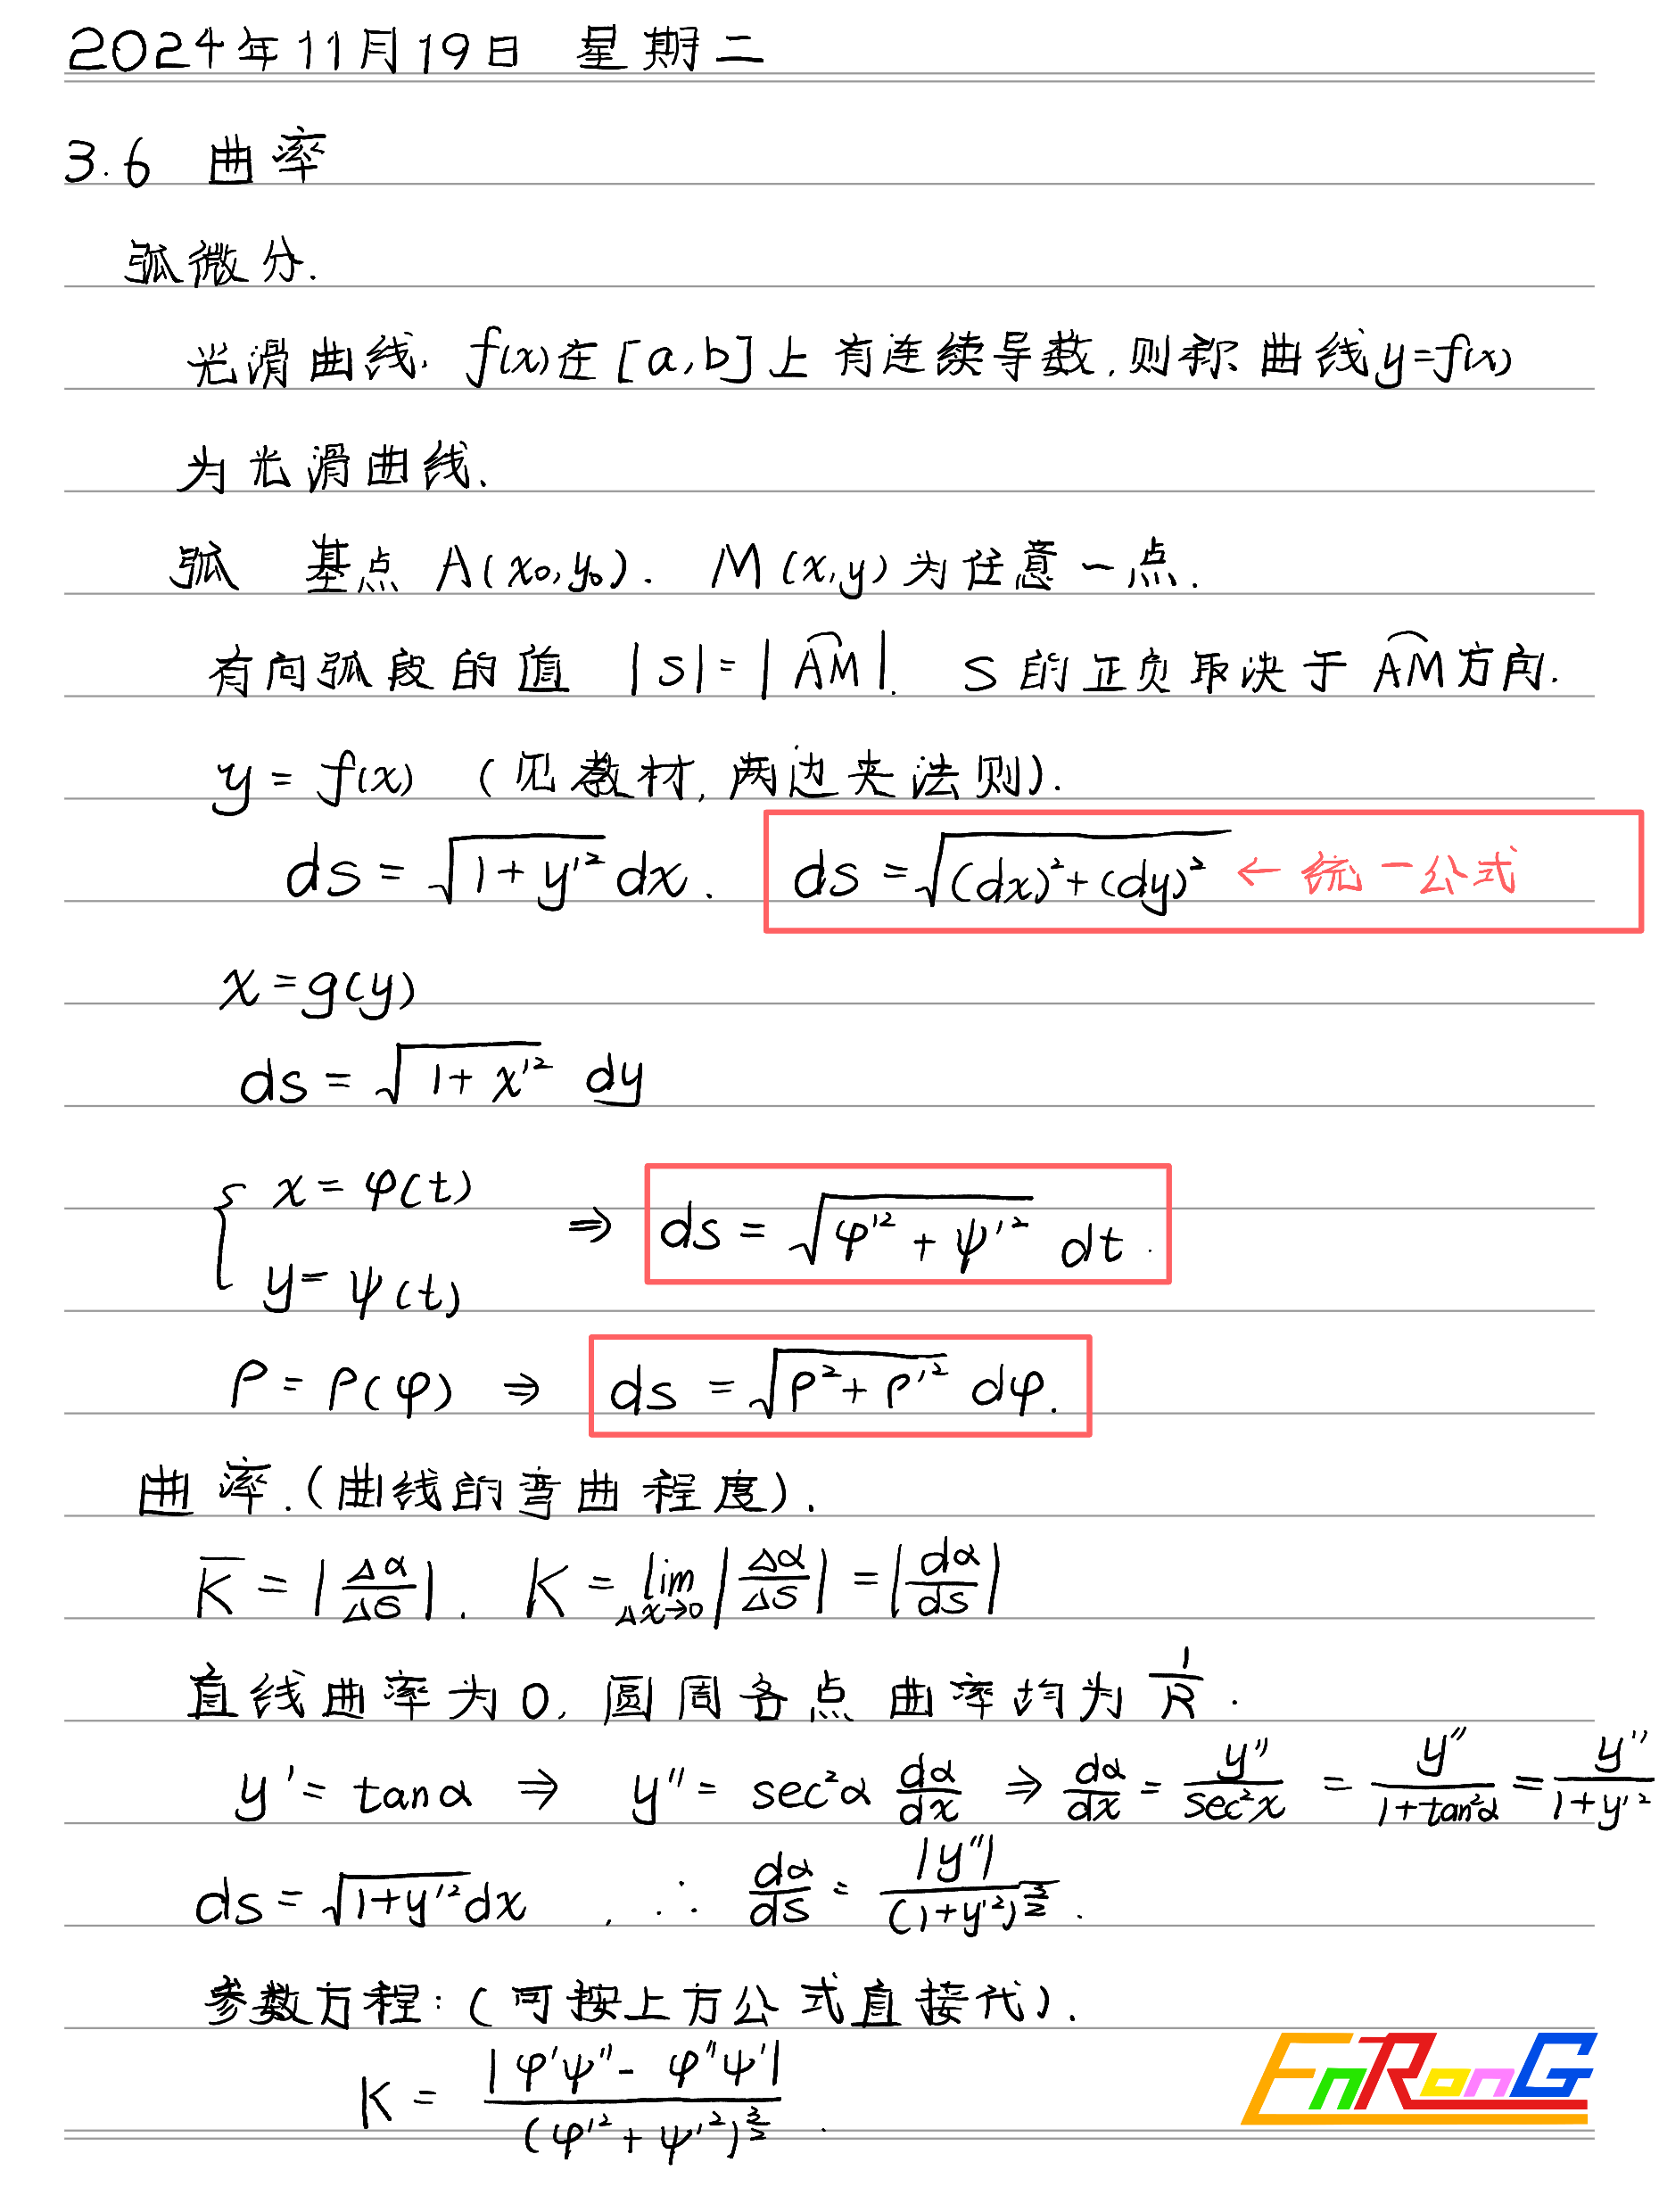 2024年11月19日 星期二
3.6 曲率
弧微分.
光滑曲线. f(x)在[a,b]上有连续导数,则称曲线y=f(x)
为光滑曲线.
弧 基点 A(x₀,y₀). M(x,y)为任意一点.
有向弧段的值 |s|=|A͡M|. S的正负取决于A͡M方向.
y = f(x) (见教材,两边夹法则).
ds = √(1+y'²) dx. ds = √((dx)²+(dy)²) ← 统一公式
x = g(y)
ds = √(1+x'²) dy
{ x = φ(t)
y = ψ(t) ⇒ ds = √(φ'²+ψ'²) dt.
ρ = ρ(φ) ⇒ ds = √(ρ²+ρ'²) dφ.
曲率.(曲线的弯曲程度).
K̅ = |Δα/Δs|. K = lim Δx→0 |Δα/Δs| = |dα/ds|
直线曲率为0, 圆周各点曲率均为 1/R.
y' = tanα ⇒ y'' = sec²α dα/dx ⇒ dα/dx = y''/sec²x = y''/(1+tan²α) = y''/(1+y'²)
ds = √(1+y'²) dx , ∴ dα/ds = |y''|/(1+y'²)^(3/2).
参数方程:(可按上方公式直接代).
K = |φ'ψ''- φ''ψ'|/(φ'²+ψ'²)^(3/2).
EnRonG